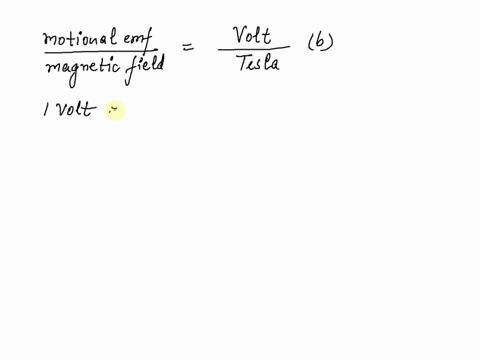 motional emf / magnetic field = Volt / Tesla (b)
1 Volt =